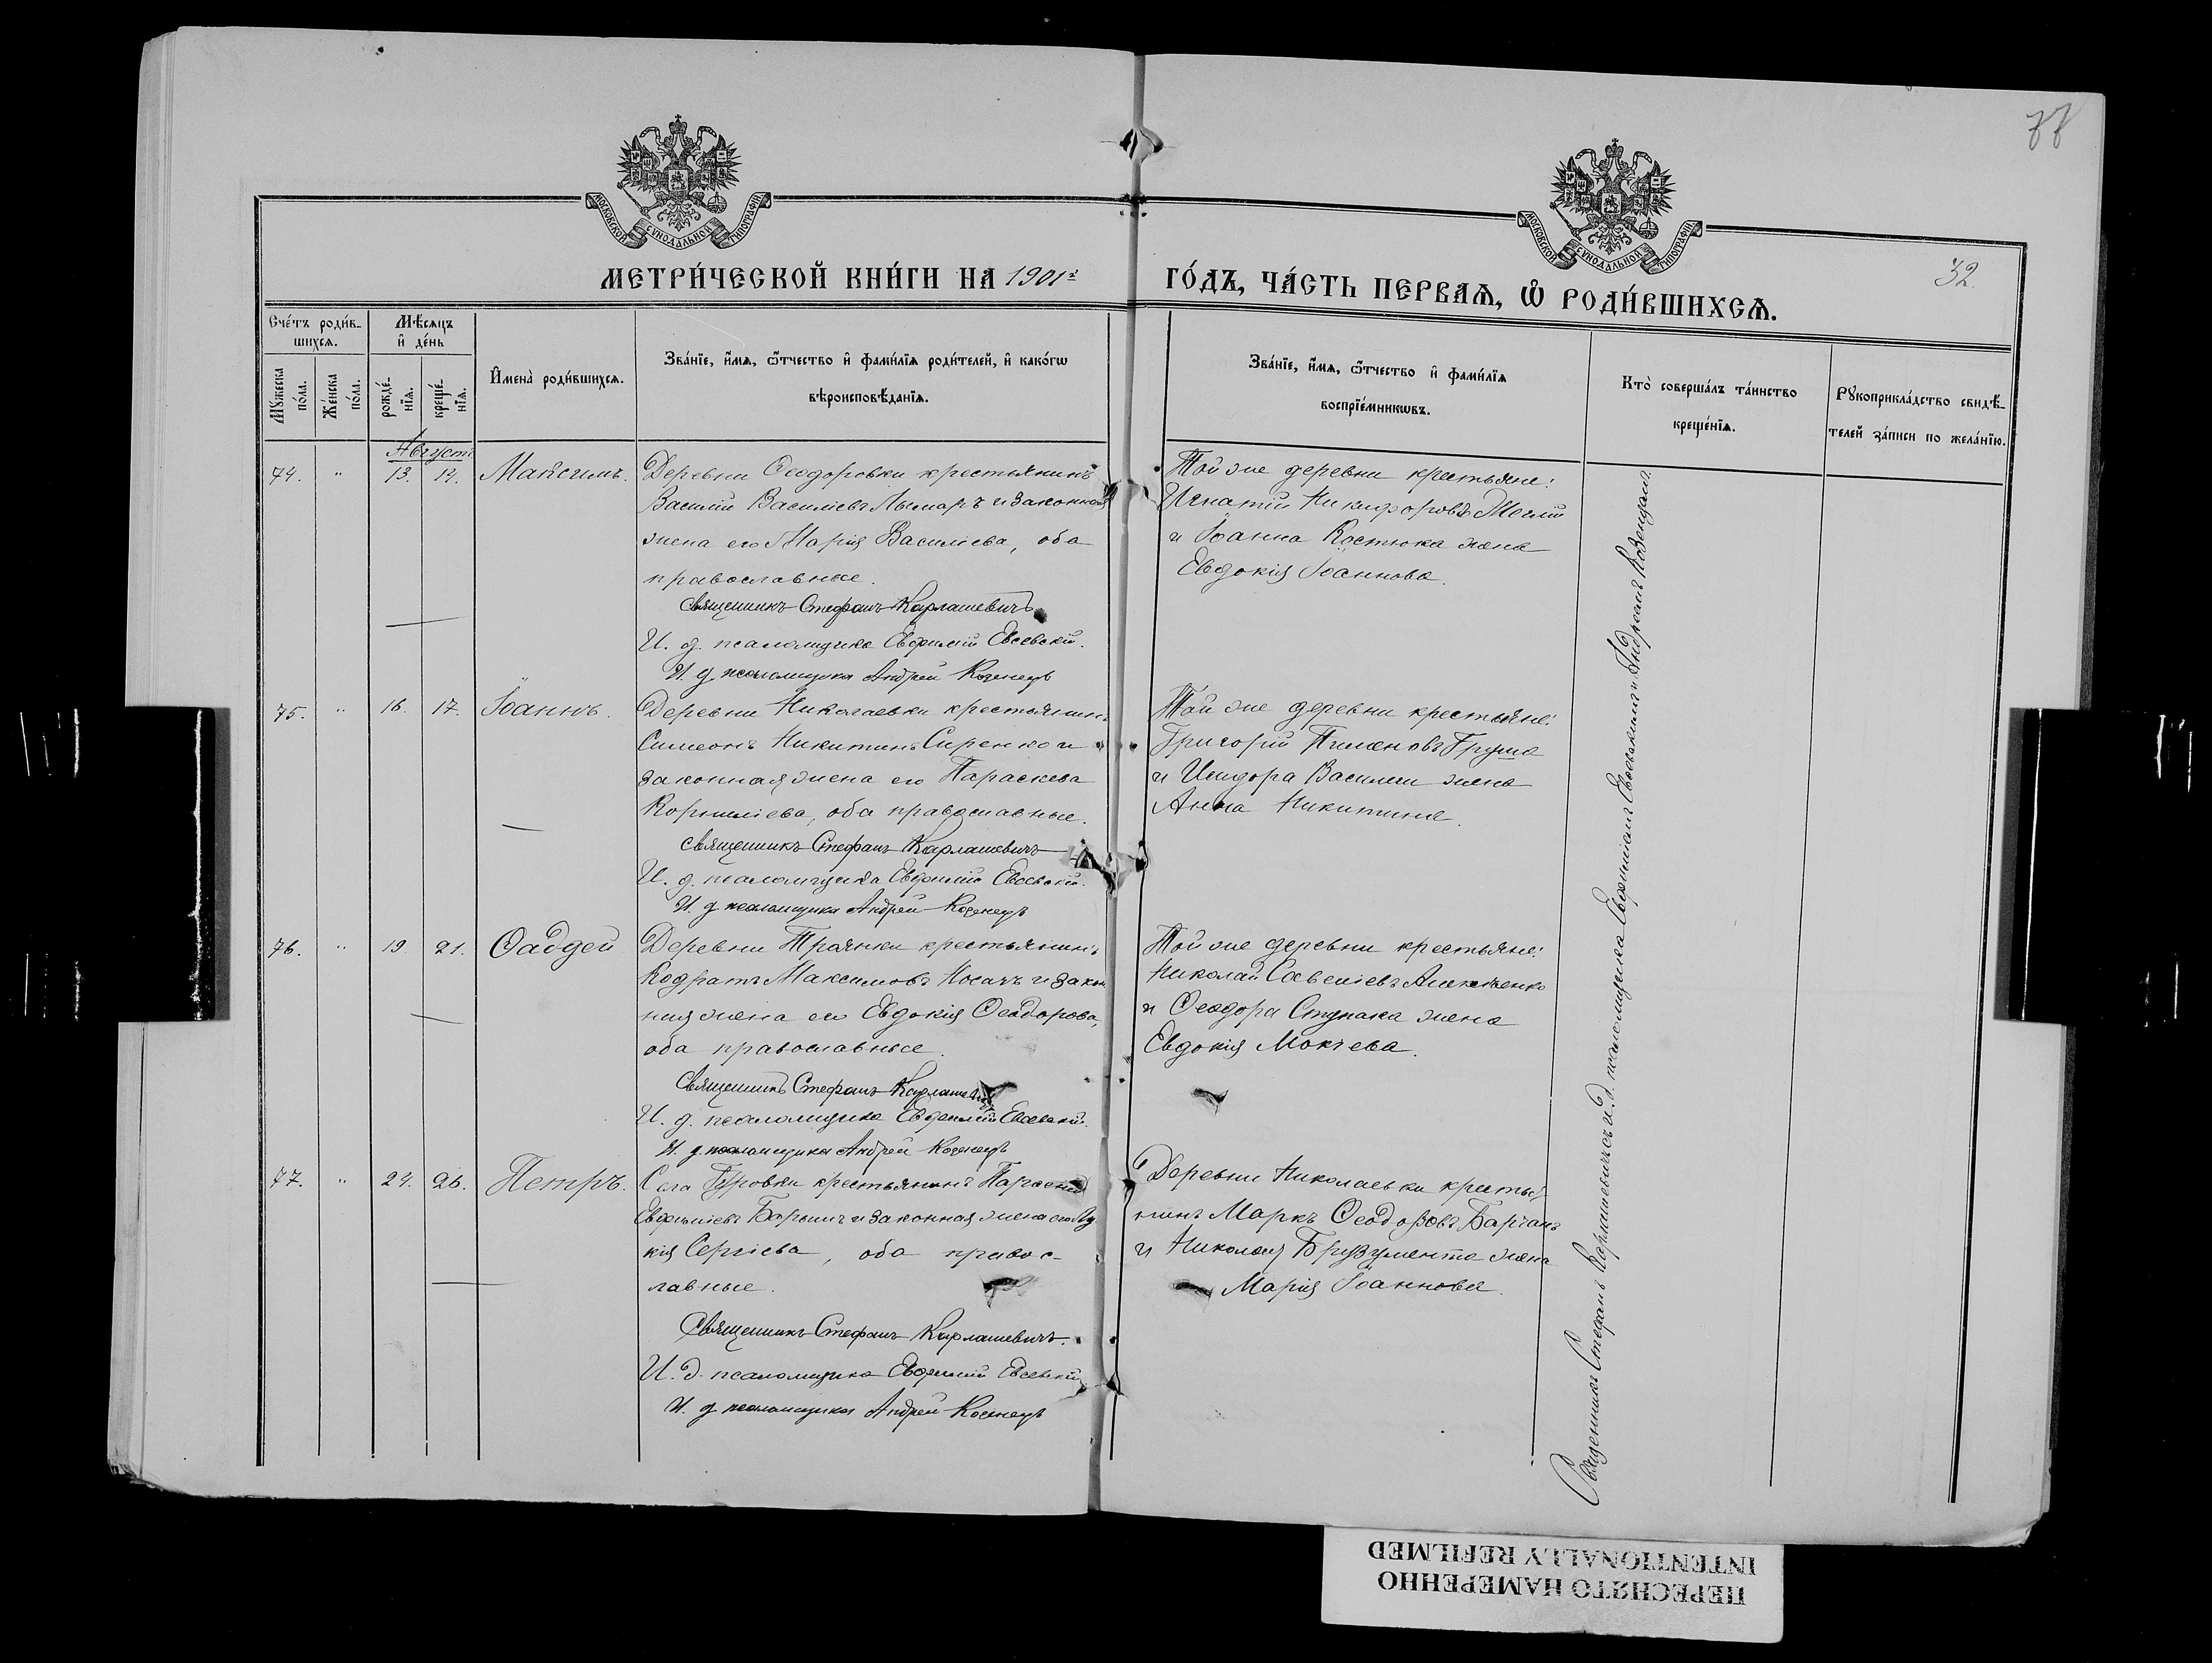 77
МОСКОВСКОЙ СѴНОДАЛЬНОЙ ТИПОГРАФІИ
МОСКОВСКОЙ СѴНОДАЛЬНОЙ ТИПОГРАФІИ
МЕТРИ́ЧЕСКОЙ КНИ́ГИ НА 1901й
ГО́ДЪ, ЧА́СТЬ ПЕРВАѦ, Ѡ҆ РОДИ́ВШИХСѦ.
32.
Сче́тъ роди́в-
шихсѧ.
Мꙋ́жеска
по́ла.
Же́нска
по́ла.
Мѣ́сѧцъ
и҆ де́нь
рожде́-
нїѧ.
креще́-
нїѧ.
И҆мена̀ роди́вшихсѧ.
Зва́нїе, и҆́мѧ, ѻ҆́тчество и҆ фами́лїѧ роди́телей, и҆ како́гѡ
вѣроисповѣ́данїѧ.
Зва́нїе, и҆́мѧ, ѻ҆́тчество и҆ фами́лїѧ
воспрїе́мникѡвъ.
Кто̀ соверша́лъ та́инство
креще́нїѧ.
Рꙋкоприкла́дство свидѣ́-
телей за́писи по жела́нїю.
Августъ
74. " 13. 14. Максимъ.
Деревни Ѳеодоровки крестьянинъ
Василій Василіевъ Лымарь и законная
жена его Марія Василіева, оба
православные.
Священникъ Стефанъ Карлашевичъ
И. д. псаломщика Евфимій Евсевскій.
И. д. псаломщика Андрей Козенецъ
Той же деревни крестьяне:
Игнатій Никифоровъ
и Іоанна Костюка жена
Евдокія Іоаннова.
75. " 16. 17. Іоаннъ.
Деревни Николаевки крестьянинъ
Симеонъ Никитинъ Сиренко и
законная жена его Параскева
Корниліева, оба православные.
Священникъ Стефанъ Карлашевичъ
И. д. псаломщика Евфимій Евсевскій.
И. д. псаломщика Андрей Козенецъ
Той же деревни крестьяне:
Григорій Пименовъ Груша
и Исидора Василеги жена
Анна Никитина.
76. " 19. 21. Ѳаддей
Деревни Троянки крестьянинъ
Кодратъ Максимовъ Носачъ и закон
ная жена его Евдокія Ѳеодорова,
оба православные.
Священникъ Стефанъ Карлашевичъ
И. д. псаломщика Евфимій Евсевскій.
И. д. псаломщика Андрей Козенецъ
Той же деревни крестьяне:
Николай Савеліевъ
и Ѳеодора Ступака жена
Евдокія Мокіева.
77. " 24. 26. Петръ.
Села Гуровки крестьянинъ Парѳеній
Евфиміевъ и законная жена его Лу
кія Сергіева, оба правос-
лавные.
Священникъ Стефанъ Карлашевичъ.
И. д. псаломщика Евфимій Евсевскій
И. д. псаломщика Андрей Козенецъ
Деревни Николаевки крестья
нинъ Маркъ Ѳеодоровъ Барганъ
и Николая жена
Марія Іоаннова.
Священникъ Стефанъ Карлашевичъ съ и. д. псаломщика Евфиміемъ Евсевскимъ и Андреемъ Козенцемъ.
ПЕРЕСНЯТО НАМЕРЕННО
INTENTIONALLY REFILMED